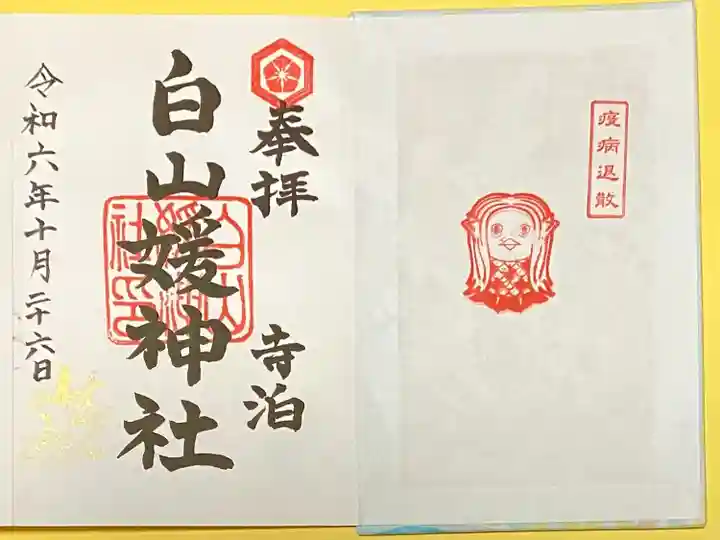 疫病退散
奉拝 寺泊
白山媛神社
白山媛神社印
令和六年十月二十六日